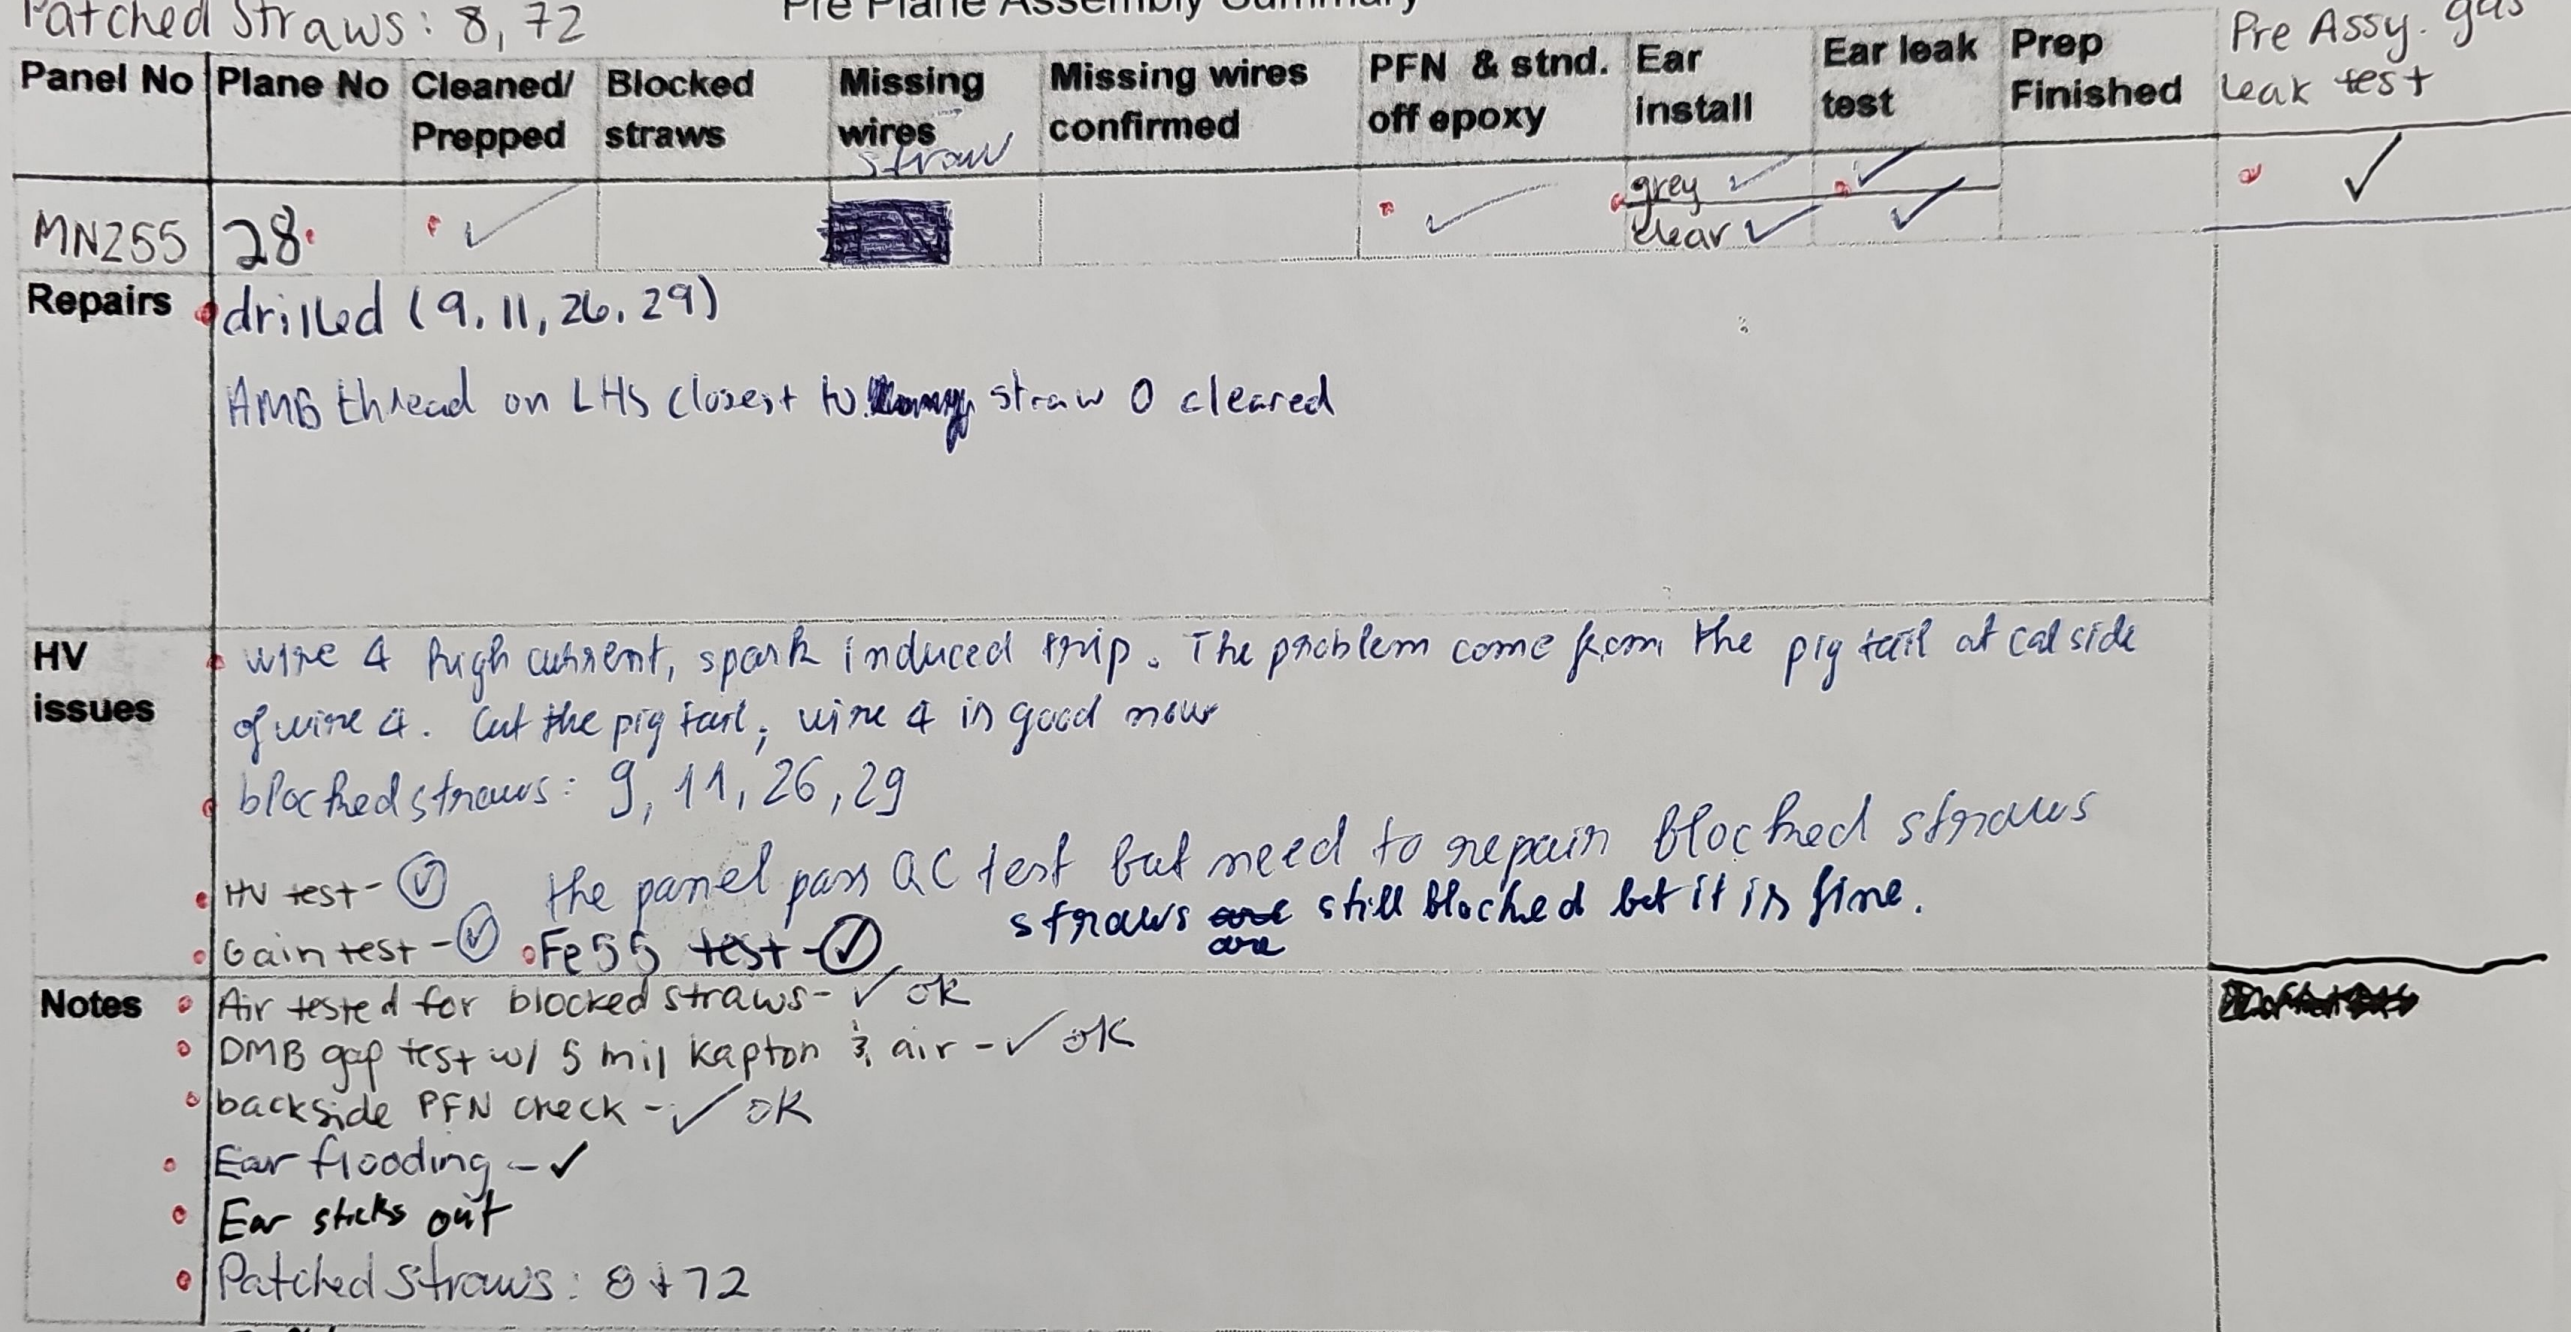 Patched Straws: 8, 72
Pre Plane Assembly Summary
Panel No Plane No Cleaned/ Prepped Blocked straws Missing wires straw Missing wires confirmed PFN & stnd. off epoxy Ear install Ear leak test Prep Finished Pre Assy. gas leak test
MN255 28 ✓ ✓ grey ✓ ✓ ✓
clear ✓ ✓
Repairs drilled (9, 11, 26, 29)
AMB thread on LHS closest to straw 0 cleared
HV issues wire 4 high current, spark induced trip. The problem come from the pig tail at cal side
of wire 4. Cut the pig tail, wire 4 is good now
blocked straws: 9, 11, 26, 29
HV test - ✓ the panel pass QC test but need to repair blocked straws
straws are still blocked but it is fine.
Gain test - ✓ Fe55 test - ✓
Notes Air tested for blocked straws - ✓ ok
DMB gap test w/ 5 mil kapton & air - ✓ ok
backside PFN check - ✓ ok
Ear flooding - ✓
Ear sticks out
Patched straws: 8 + 72